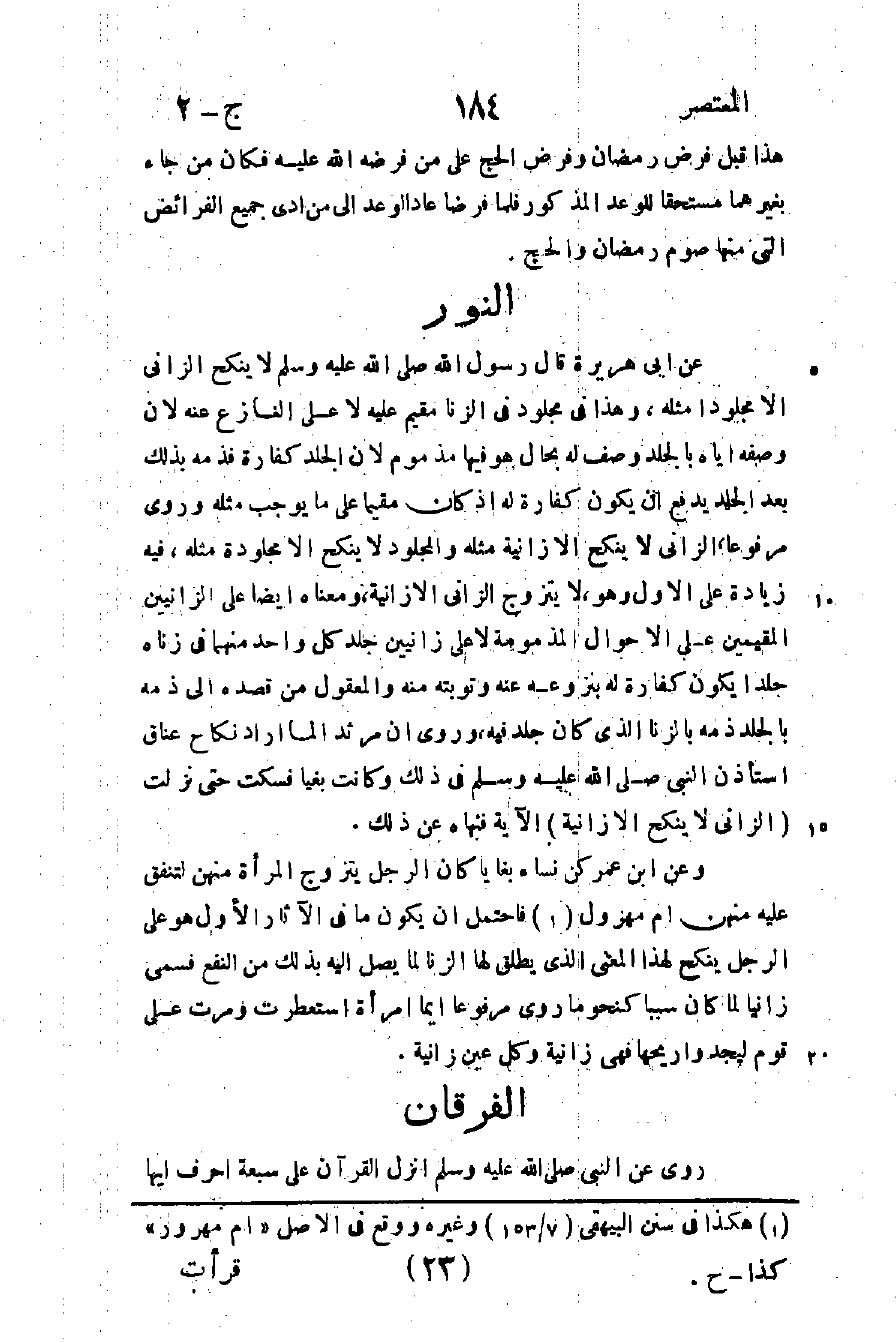 المعتصر ١٨٤ ج - ٢
هذا قبل فرض رمضان وفرض الحج على من فرضه الله عليه فكان من جاء
بغيرهما مستحقا للوعد المذكور فلما فرضا عاد الوعد الى من ادى جميع الفرائض
التى منها صوم رمضان والحج .
النور
عن ابى هريرة قال رسول الله صلى الله عليه وسلم لا ينكح الزانى ٥
الا مجلودا مثله ، وهذا فى مجلود فى الزنا مقيم عليه لا على النازع عنه لان
وصفه اياه بالجلد وصف له بحال هو فيها مذموم لان الجلد كفارة فذمه بذلك
بعد الجلد يدفع ان يكون كفارة له اذ كان مقيما على ما يوجب مثله وروى
مرفوعا، الزانى لا ينكح الا زانية مثله والمجلود لا ينكح الا مجلودة مثله ، فيه
زيادة على الاول وهو، لا يتزوج الزانى الا زانية، ومعناه ايضا على الزانيين ١٠
المقيمين على الاحوال المذمومة لا على زانيين جلد كل واحد منهما فى زناه
جلدا يكون كفارة له بنزوعه عنه وتوبته منه والمعقول من قصده الى ذمه
بالجلد ذمه بالزنا الذى كان جلد فيه، وروى ان مرثد الما اراد نكاح عناق
استأذن النبى صلى الله عليه وسلم فى ذلك وكانت بغيا فسكت حتى نزلت
( الزانى لا ينكح الا زانية ) الآية فنهاه عن ذلك . ١٥
وعن ابن عمر كن نساء بغايا كان الرجل يتزوج المرأة منهن لتنفق
عليه منهن ام مهزول (١) فاحتمل ان يكون ما فى الآثار الأول هو على
الرجل ينكح لهذا المعنى الذى يطلق لها الزنا لما يصل اليه بذلك من النفع فسمى
زانيا لما كان سببا كنحو ما روى مرفوعا ايما امرأة استعطرت ومرت على
قوم ليجدوا ريحها فهى زانية وكل عين زانية . ٢٠
الفرقان
روى عن النبى صلى الله عليه وسلم انزل القرآن على سبعة احرف ايها
(١) هكذا فى سنن البيهقى ( ٧/ ١٥٣ ) وغيره ووقع فى الاصل «ام مهرور»
كذا - ح . (٢٣) قرأت